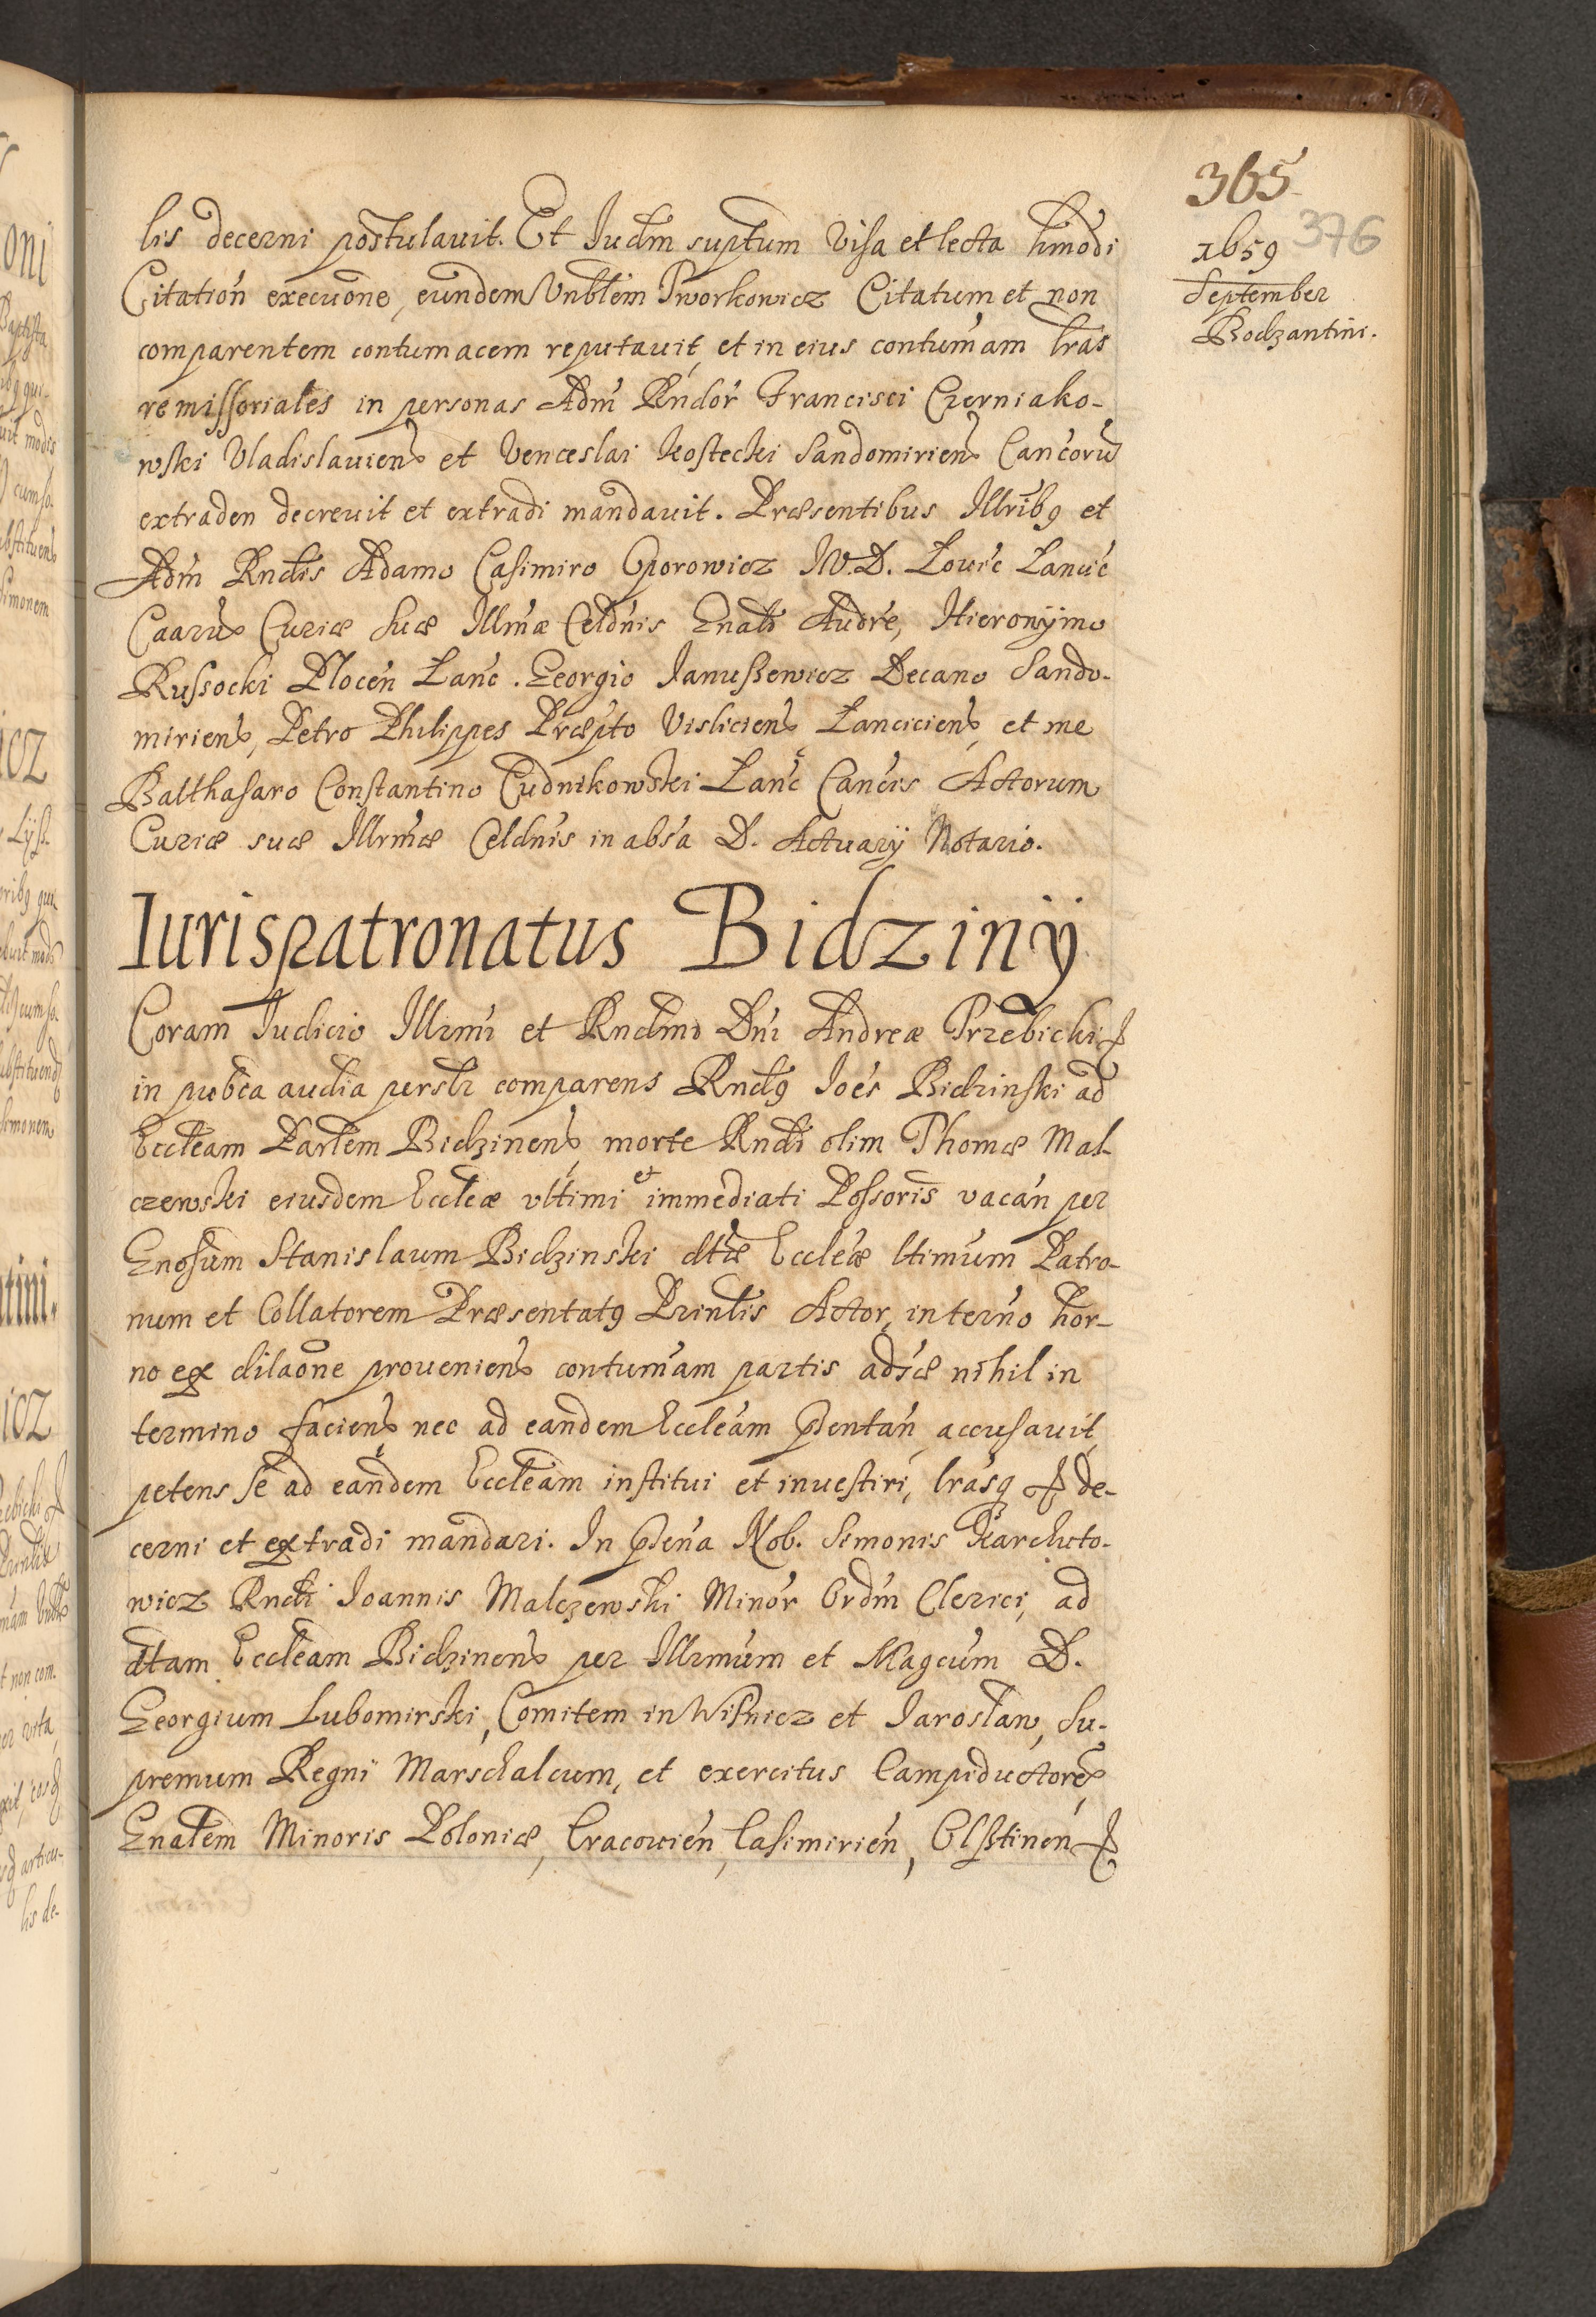 365
376
1659
September
Bodzantini.
lis decerni postulauit. Et Iudm suptum visa et lecta hmodi
Citation execuone, eundem Vnblem Tworkowicz Citatum et non
comparentem contumacem reputauit, et in eius contumam lras
remissoriales in personas Adm Rndor Francisci Czerniako-
wski Vladislauiens et Venceslai Kostecki Sandomiriens Cancoru
extraden decreuit et extradi mandauit. Præsentibus Illribq et
Adm Rndis Adamo Casimiro Oporowicz IV.D. Louic Lancic
Caaru Curiæ suæ Illmæ Celdnis Gnali Audre, Hieronÿmo
Russocki Plocen Lanc. Georgio Ianuszewicz Decano Sando-
miriens, Petro Philippes Præpto Visliciens Lanciciens, et me
Balthasaro Constantino Cudnikowski Lanc Cancis Actorum
Curiæ suæ Illrmæ Celdnis in absa D. Actuarÿ Notario.
Iurispatronatus Bidzinÿ
Coram Iudicio Illrmi et Rndmi Dni Andreæ Trzebicki &
in pubca audia persلr comparens Rndq Ioes Bidzinski ad
Eccleam Parlem Bidzinens, morte Rndi olim Thomæ Mal-
czewski eiusdem Eccleæ vltimi et immediati Possoris vacan per
Gnosum Stanislaum Bidzinski dtæ Eccleæ ltimum Patro-
num et Collatorem Præsentatq Prinlis Actor, in termo hor-
no ex dilaone proueniens contumam partis adsæ nihil in
termino faciens nec ad eandem Eccleam psentan, accusauit,
petens se ad eandem Eccleam institui et inuestiri, lrasq & de-
cerni et extradi mandari. In psena Nob. Simonis Karchuto-
wicz Rndi Ioannis Malczewski Minor Ordm Clerici, ad
dtam Eccleam Bidzinens per Illrmum et Magcum D.
Georgium Lubomirski, Comitem in Wisnicz et Iaroslaw, Su-
premum Regni Marschalcum, et exercitus Campiductore,
Gnalem Minoris Poloniæ, Cracouien, Casimirien, Olsztinen &